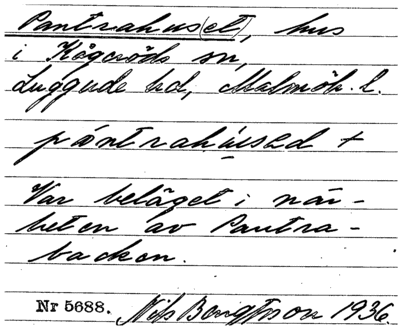 Pantrahus(et), hus
i Kågeröds sn,
Luggude hd, Malmöh. l.
pántrahùsəd +
Var beläget i när-
heten av Pantra-
backen.
Nr 5688. Nils Bengtsson 1936.